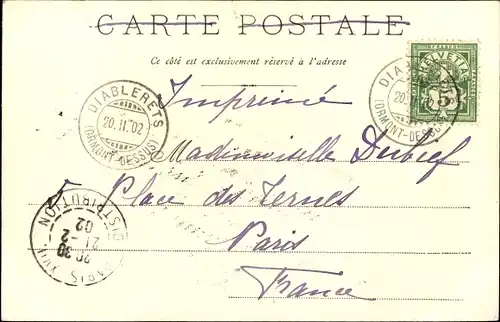 CARTE POSTALE
Ce côté est exclusivement réservé à l'adresse
HELVETIA
5
DIABLERETS
20.II.02
(ORMONT-DESSUS)
DIABLERETS
20.
(ORMONT-DESSUS)
Imprimé
Mademoiselle Dubief
5 Place des Ternes
Paris
France
PARIS XVII
20 30
21-2
02
DISTRIBUTION